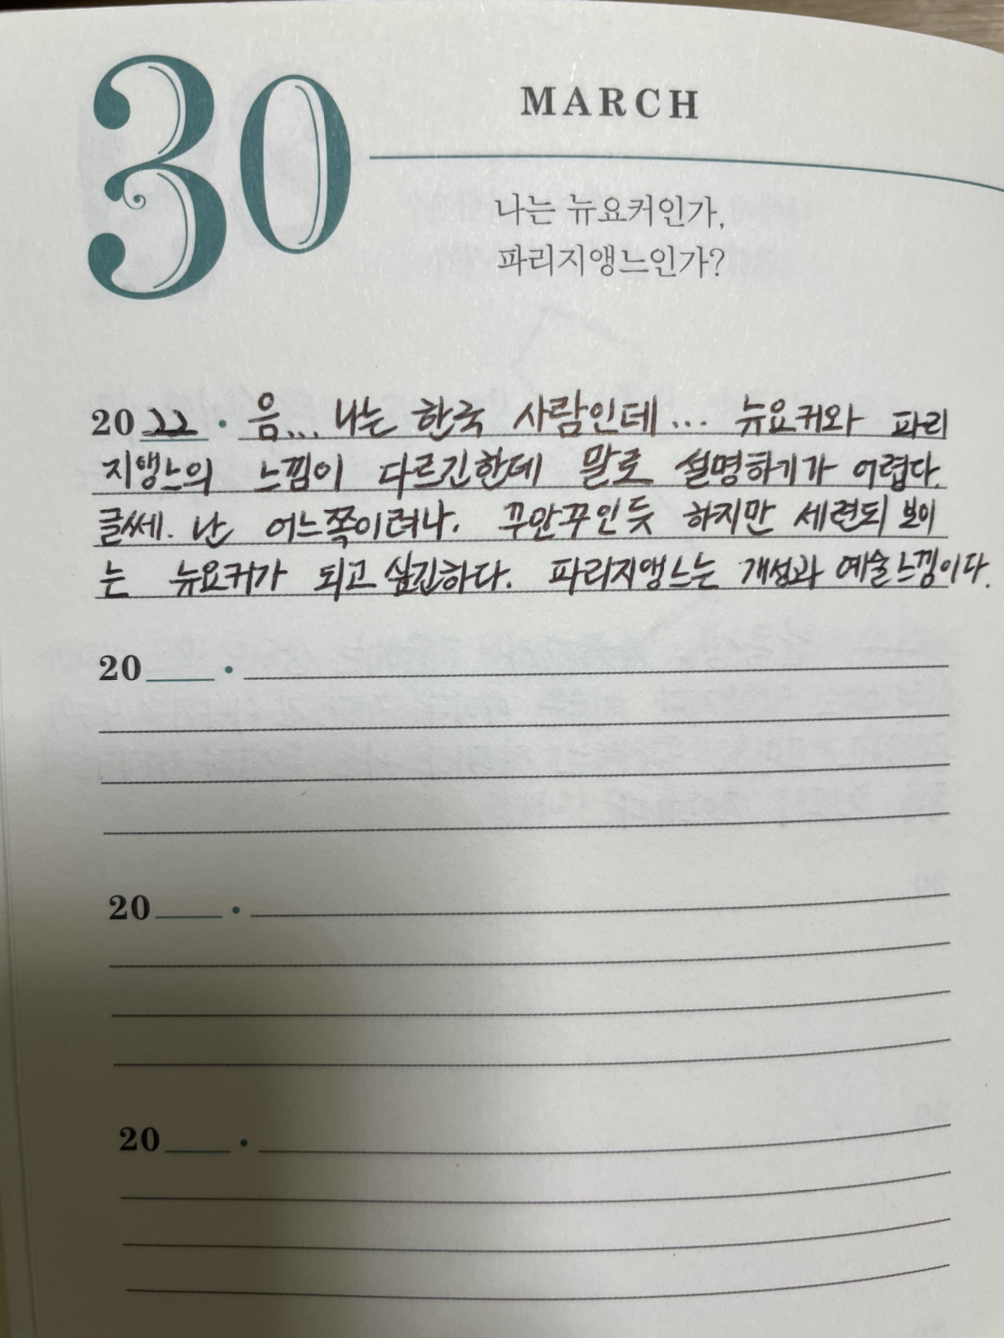 30
MARCH
나는 뉴요커인가,
파리지앵느인가?
2022 · 음... 나는 한국 사람인데... 뉴요커와 파리
지앵느의 느낌이 다르긴한데 말로 설명하기가 어렵다.
글쎄. 난 어느쪽이려나. 꾸안꾸인듯 하지만 세련되 보이
는 뉴요커가 되고싶긴하다. 파리지앵느는 개성과 예술느낌이다.
20 ·
20 ·
20 ·